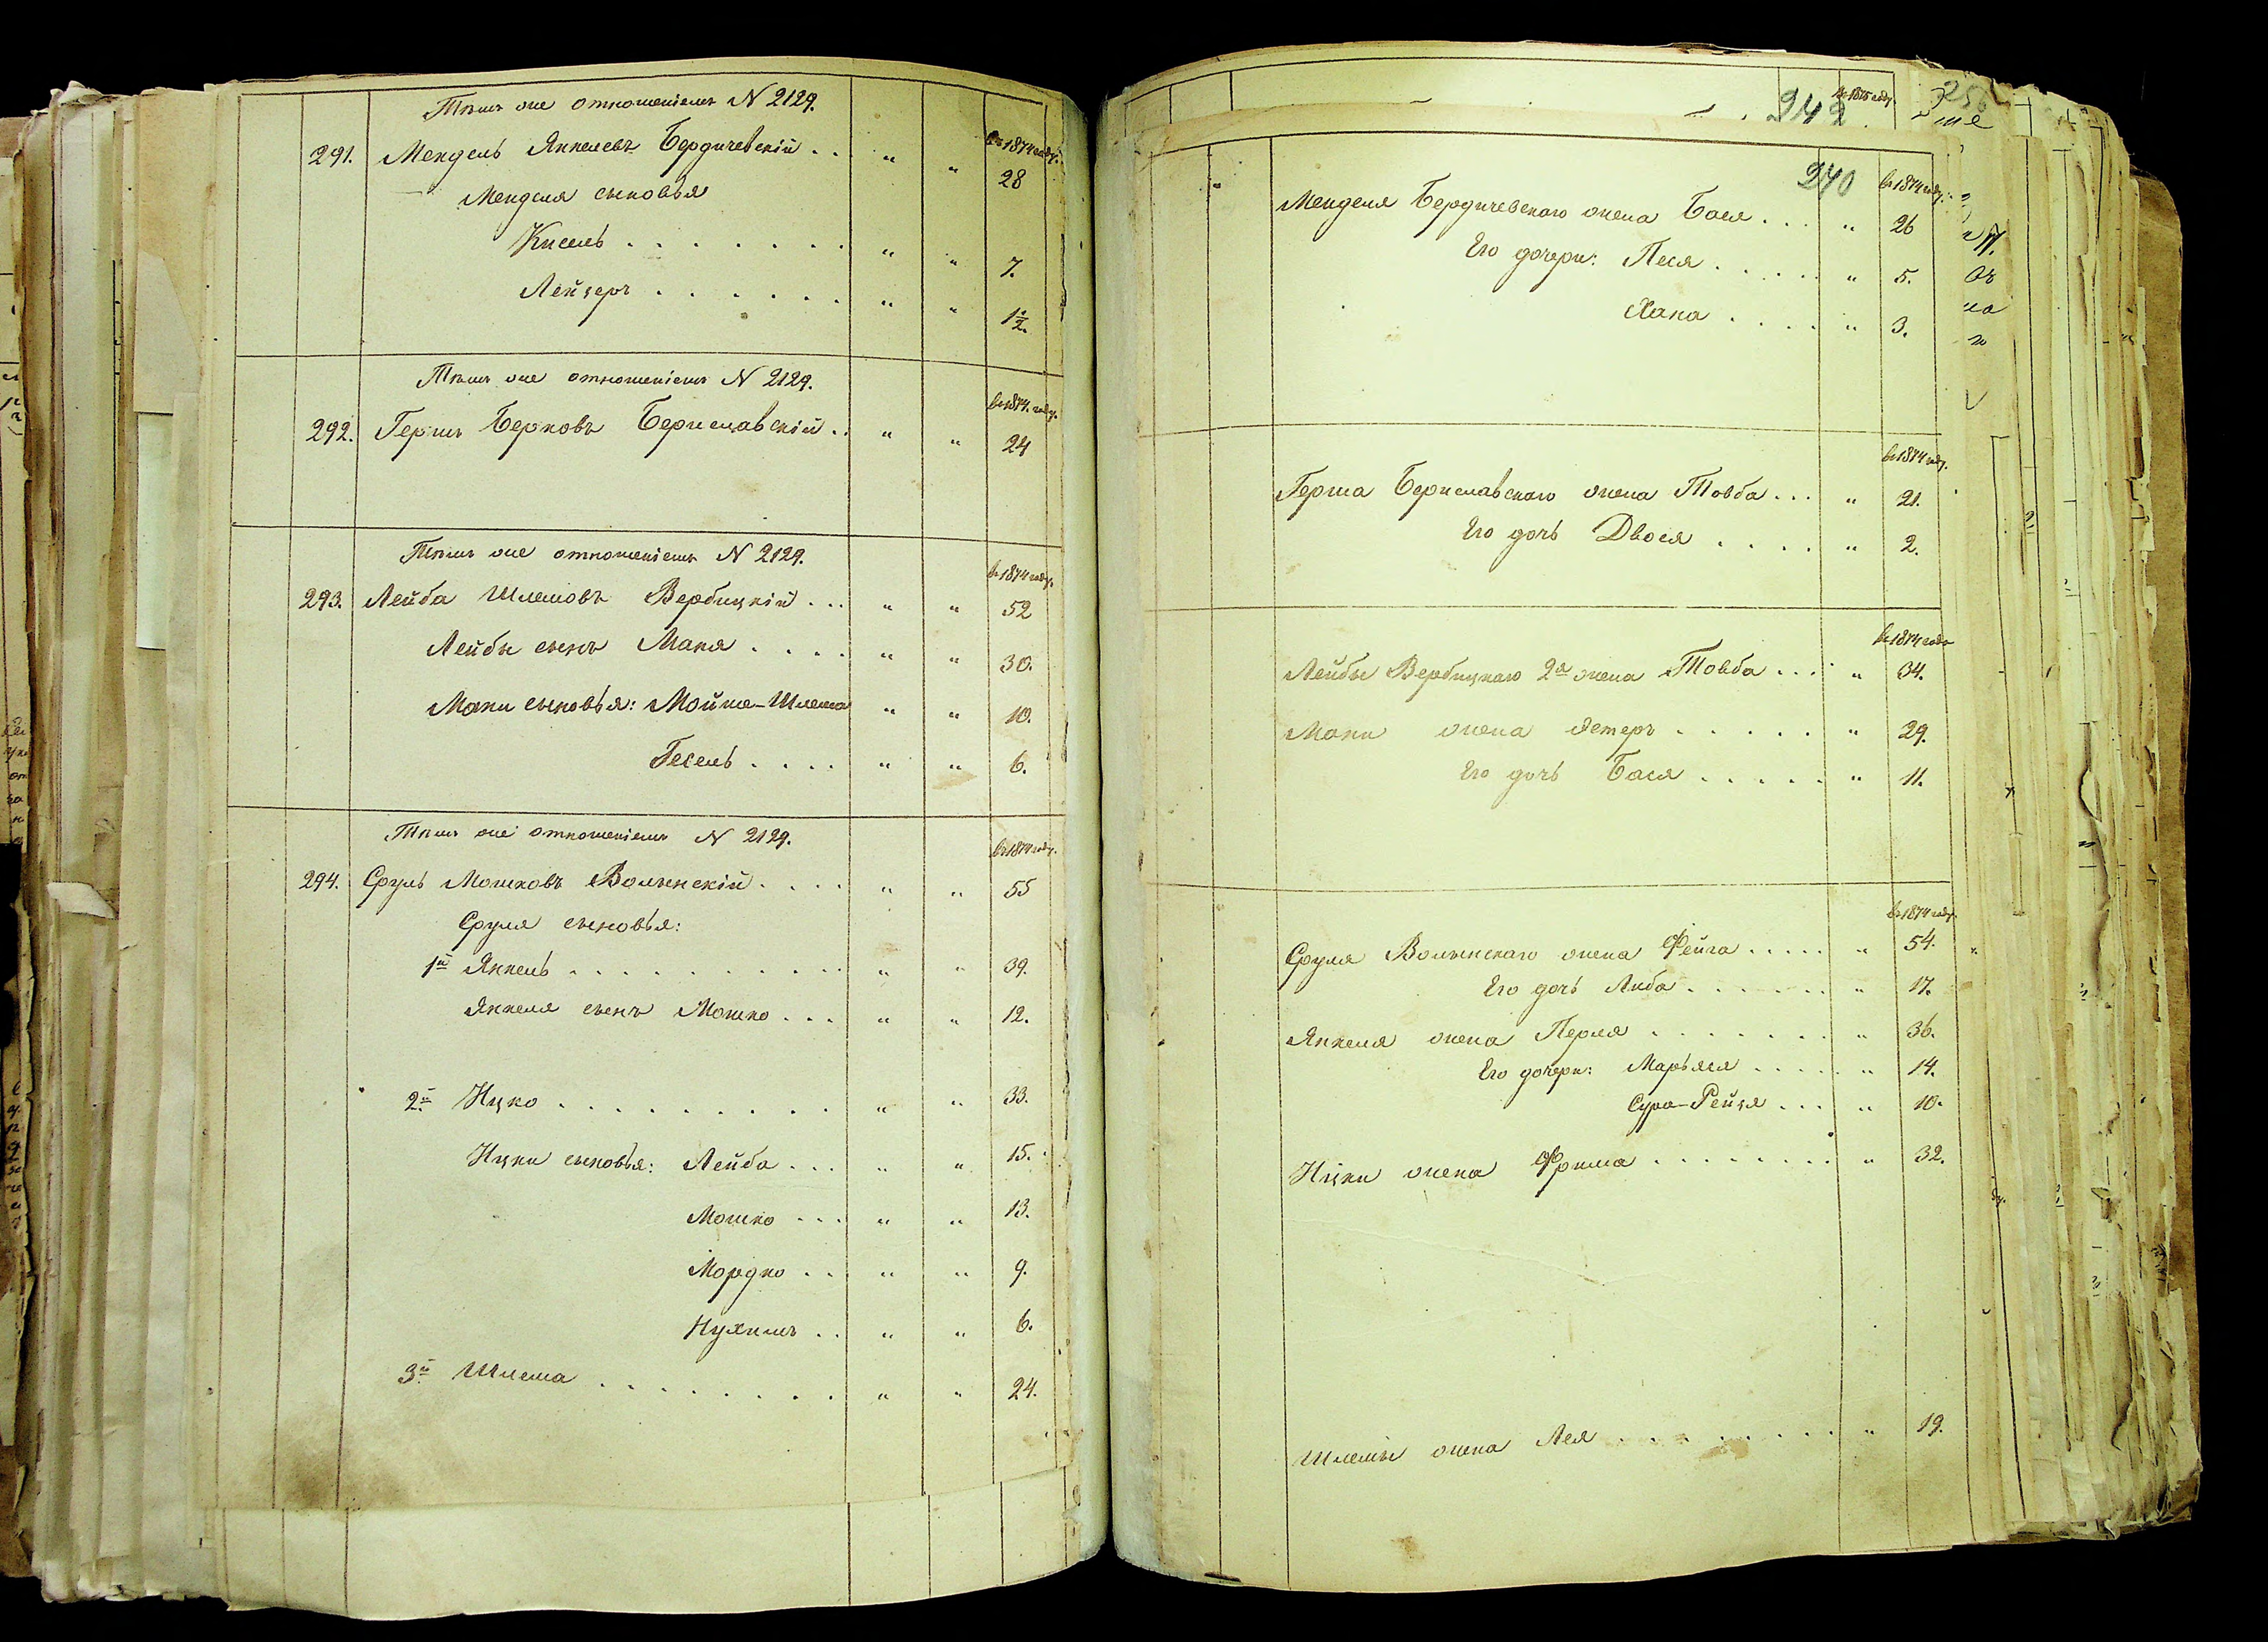 Тѣмъ же отношеніемъ N 2129.
въ 1874 году.
291. Мендель Янкелевъ Бердичевскій . . " " 28
Менделя сыновья
Кисель . . . . . . . " " 7.
Лейзеръ . . . . . . " " 1½.
Тѣмъ же отношеніемъ N 2129.
въ 1874. году.
292. Гершъ Берковъ Бериславскій . . " " 24
Тѣмъ же отношеніемъ N 2129.
въ 1874 году.
293. Лейба Шлемовъ Вербицкій . . . " " 52
Лейбы сынъ Маня . . . . " " 30.
Мани сыновья: Мойше-Шлема " " 10.
Гесель . . . . " " 6.
Тѣмъ же отношеніемъ N 2129.
въ 1874 году.
294. Сруль Мошковъ Волынскій . . . . " " 55
Сруля сыновья:
1й Янкель . . . . . . . . . . " " 39.
Янкеля сынъ Мошко . . . " " 12.
2й Ицко . . . . . . . . . " " 33.
Ицки сыновья: Лейба . . . " " 15.
Мошко . . . " " 13.
Мордко . . " " 9.
Нухимъ . . " " 6.
3й Шлема . . . . . . . . " " 24.
въ 1875 году.
242
256
240
въ 1874 году.
Менделя Бердичевскаго жена Бася . . . " 26
Его дочери: Песя . . . . . " 5.
Хана . . . . " 3.
въ 1874 году.
Герша Бериславскаго жена Товба . . . " 21.
Его дочь Двося . . . . " 2.
въ 1874 году
Лейбы Вербицкаго 2я жена Товба . . . " 34.
Мани жена Эстеръ . . . . . " 29.
Его дочь Бася . . . . . " 11.
въ 1874 году.
Сруля Волынскаго жена Фейга . . . . . " 54.
Его дочь Либа . . . . . . " 17.
Янкеля жена Перля . . . . . . . " 36.
Его дочери: Марьяся . . . . . " 14.
Сура-Рейзя . . . " 10.
Ицки жена Фрима . . . . . . . . " 32.
Шлемы жена Лея . . . . . . . . " 19.